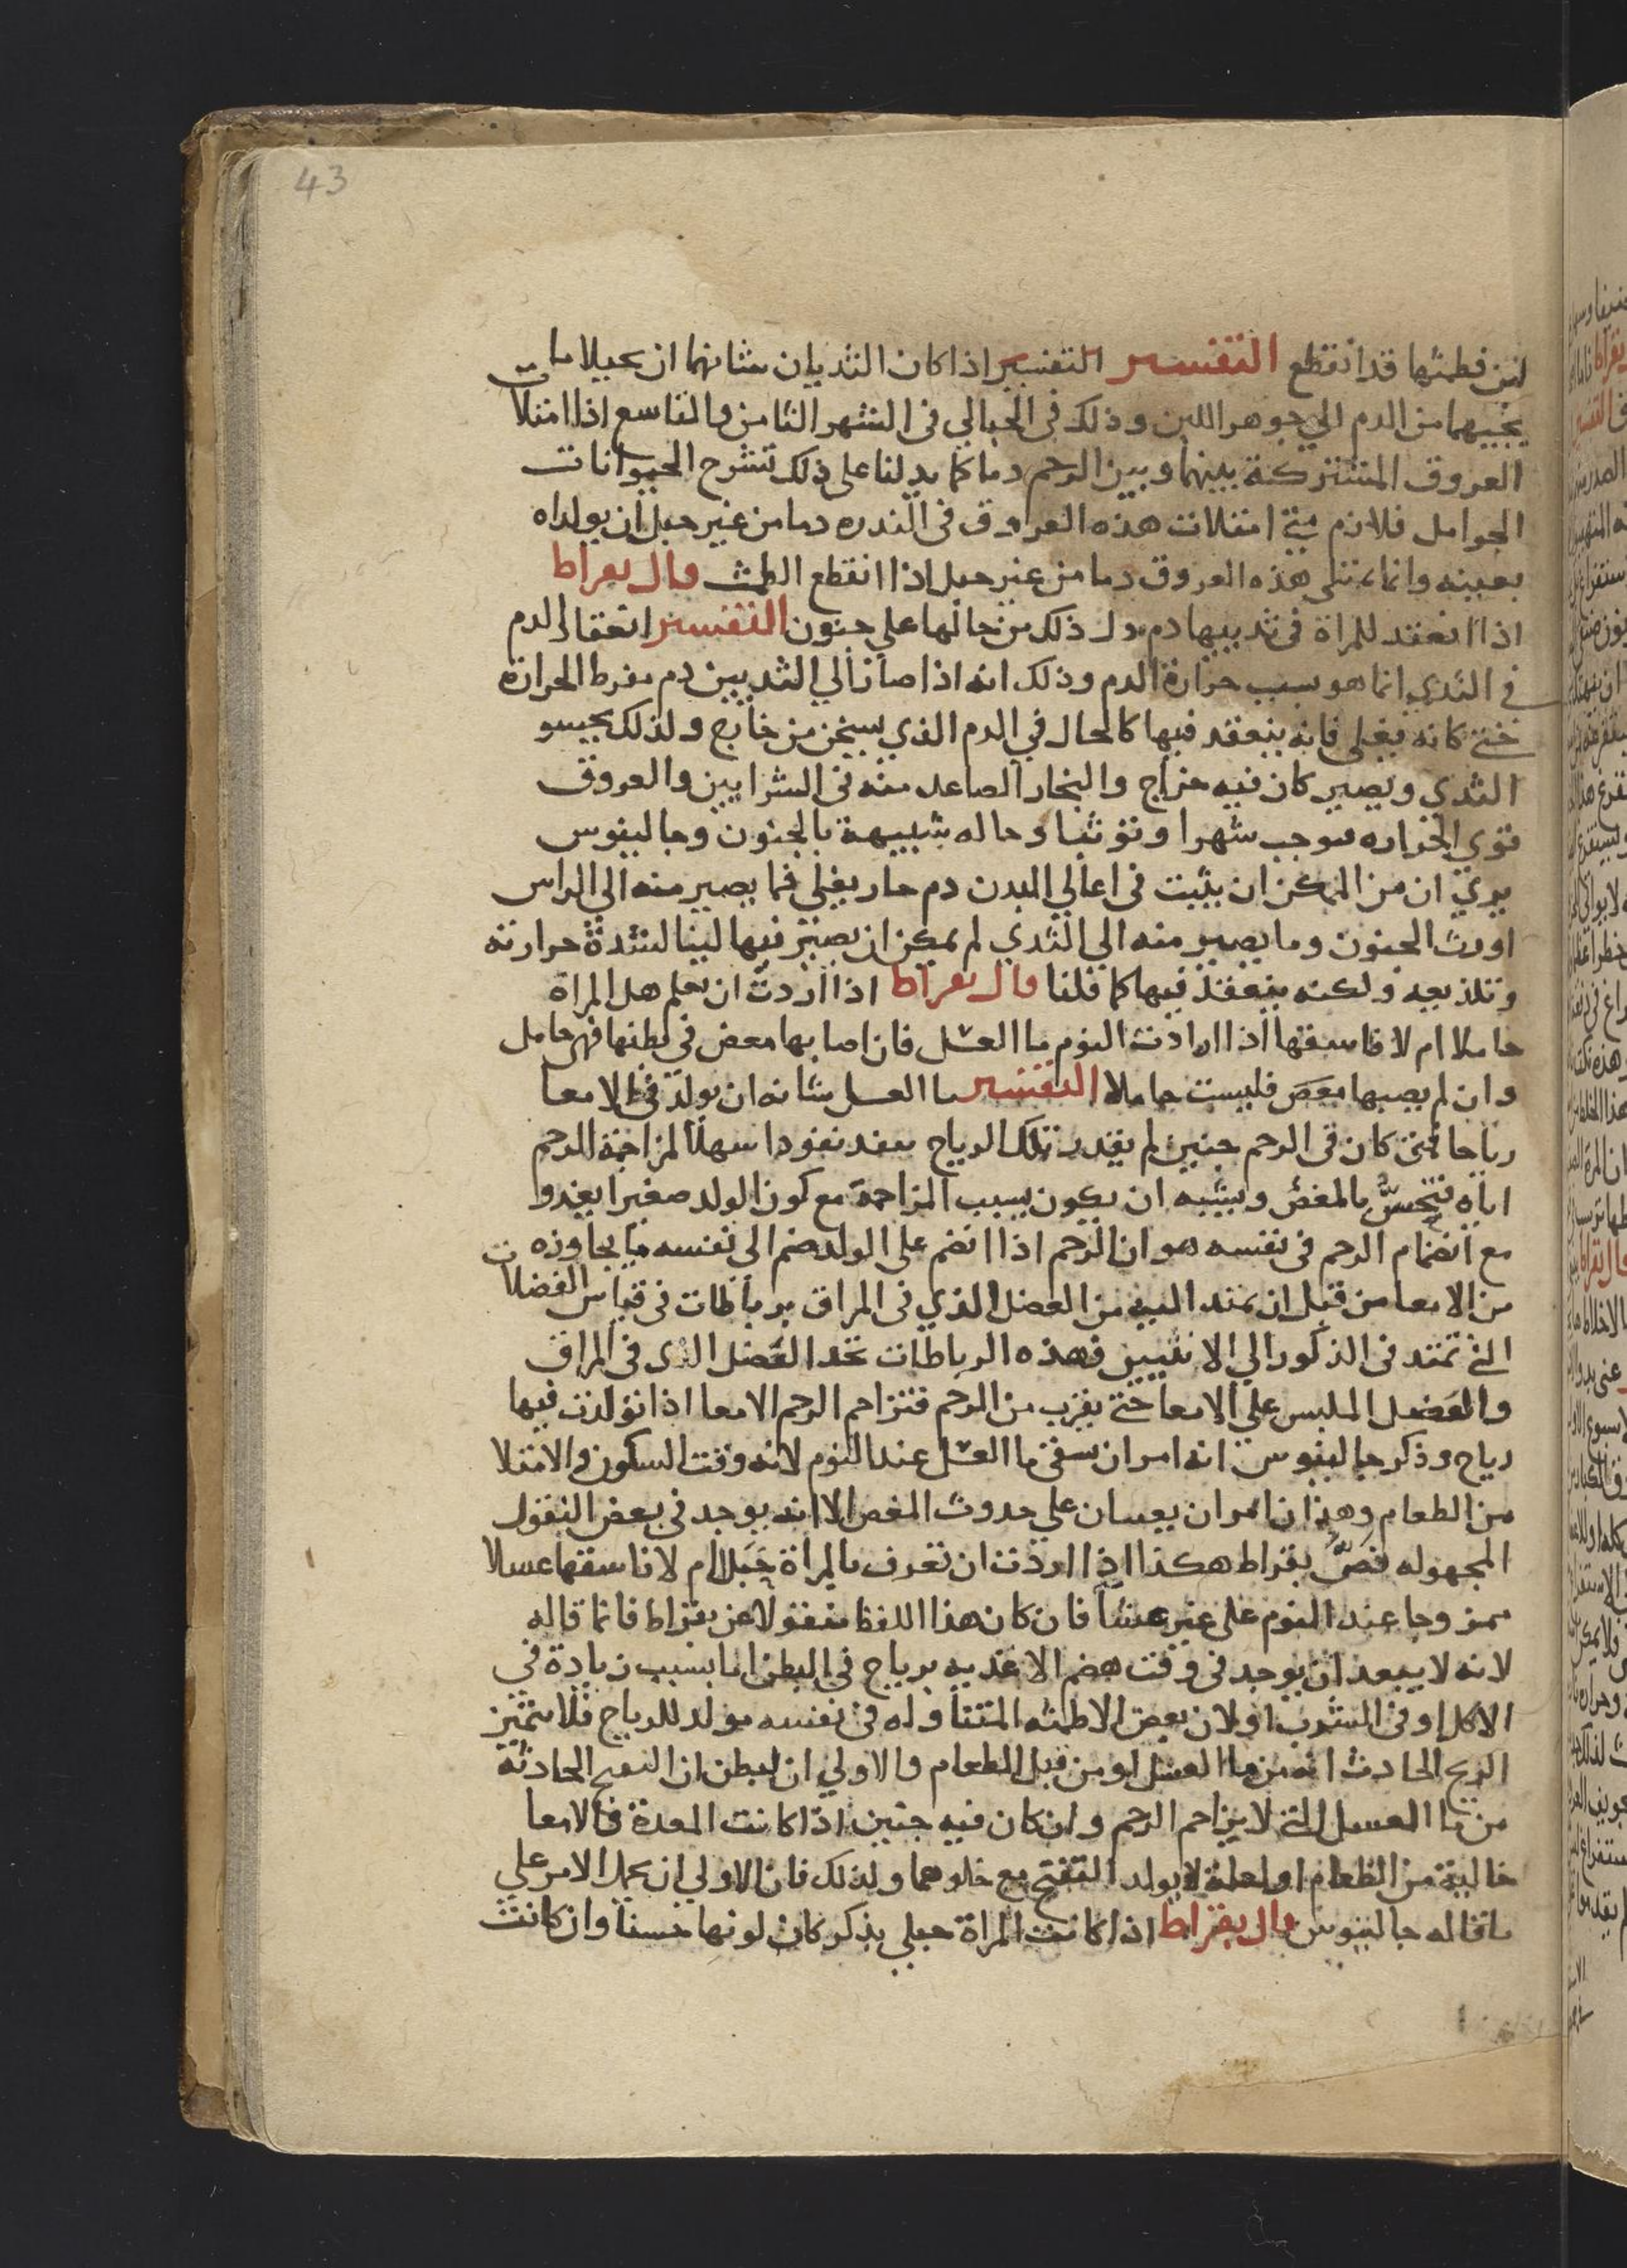 43
لبن فطمثها قد انقطع التفسير التفسير اذا كان الثديان شانهما ان يحيلا ما
يجيهما من الدم الي جوهر اللبن وذلك في الحبالي في الشهر الثامن والتاسع اذا امتلات
العروق المشتركة بينهما وبين الرحم دما كما يدلنا علي ذلك تشرح الحيوانات
الحوامل فلازم متي امتلات هذه العروق في الندره دما من غير حبل ان يولداه
بعينه وانما تمتلي هذه العروق دما من غير حبل اذا انقطع الطمث قال بقراط
اذا انعقد للمراة في ثدييها دم دل ذلك من حالها علي جنون التفسير انعقاد الدم
في الثدي انما هو بسبب حرارة الدم وذلك انه اذا صار الي الثديين دم مفرط الحرارة
حتي كانه يغلي فانه ينعقد فيها كالحال في الدم الذي يسخن من خارج ولذلك يجسو
الثدي ويصير كان فيه خراج والبخار الصاعد منه في الشرايين والعروق
قوي الحراره يوجب شهرا وتوثبا وحاله شبيهة بالجنون وجالينوس
يري ان من الممكن ان يثبت في اعالي البدن دم حار يغلي فما يصير منه الي الراس
اورث الجنون وما يصير منه الي الثدي لم يمكن ان يصير فيها لبنا لشدة حرارته
وتلذيعه ولكنه ينعقد فيها كما قلنا قال بقراط اذا اردت ان تعلم هل المراة
حاملا ام لا فاسقها اذا ارادت النوم ما العسل فان اصابها مغص في بطنها فهي حامل
وان لم يصبها مغص فليست حاملا التفسير ما العسل شانه ان يولد في الامعا
رياحا فمتي كان في الرحم جنين لم يقدر تلك الرياح ينفد نفودا سهلا لمزاحمة الرحم
اياه فتحس بالمغص ويشبه ان يكون بسبب المزاحمة مع كون الولد صغيرا يغدو
مع انضمام الرحم في نفسه هو ان الرحم اذا انضم علي الولد ضم الي نفسه ما يجاوزه
من الامعا من قبل ان يمتد اليه من العضل الذي في المراق برباطات في قياس الفضلات
التي تمتد في الذكور الي الانثيين فهذه الرباطات تحد العضل الذي في المراق
والعضل الملبس علي الامعا حتي يقرب من الرحم فتزاحم الرحم الامعا اذا تولدت فيها
رياح وذكر جالينوس انه امر ان يسقي ما العسل عند النوم لانه وقت السكون والامتلا
من الطعام وهذان امران يعينان علي حدوث المغص الا انه يوجد في بعض النقول
المجهوله فص بقراط هكذا اذا اردت ان تعرف بالمراة حبلا ام لا فاسقها عسلا
ممزوجا عند النوم علي غير عشا فان كان هذا اللفظ منقولا عن بقراط فانما قاله
لانه لا يبعد ان يوجد في وقت هضم الاغديه برياح في البطن اما بسبب زيادة في
الاكل او في الشرب او لان بعض الاطعمه المتناوله في نفسه مولد للرياح فلا يتميز
الريح الحادث انه من ما العسل او من قبل الطعام والاولي ان ليظن ان النفخ الحادثة
من ما العسل التي لا يزاحم الرحم وان كان فيه جنين اذا كانت المعدة والامعا
خالية من الطعام او لعله لا يولد النفخ مع خلوهما ولذلك فان الاولي ان يحمل الامر علي
ما قاله جالينوس قال بقراط اذا كانت المراة حبلي بذكر كان لونها حسنا وان كانت